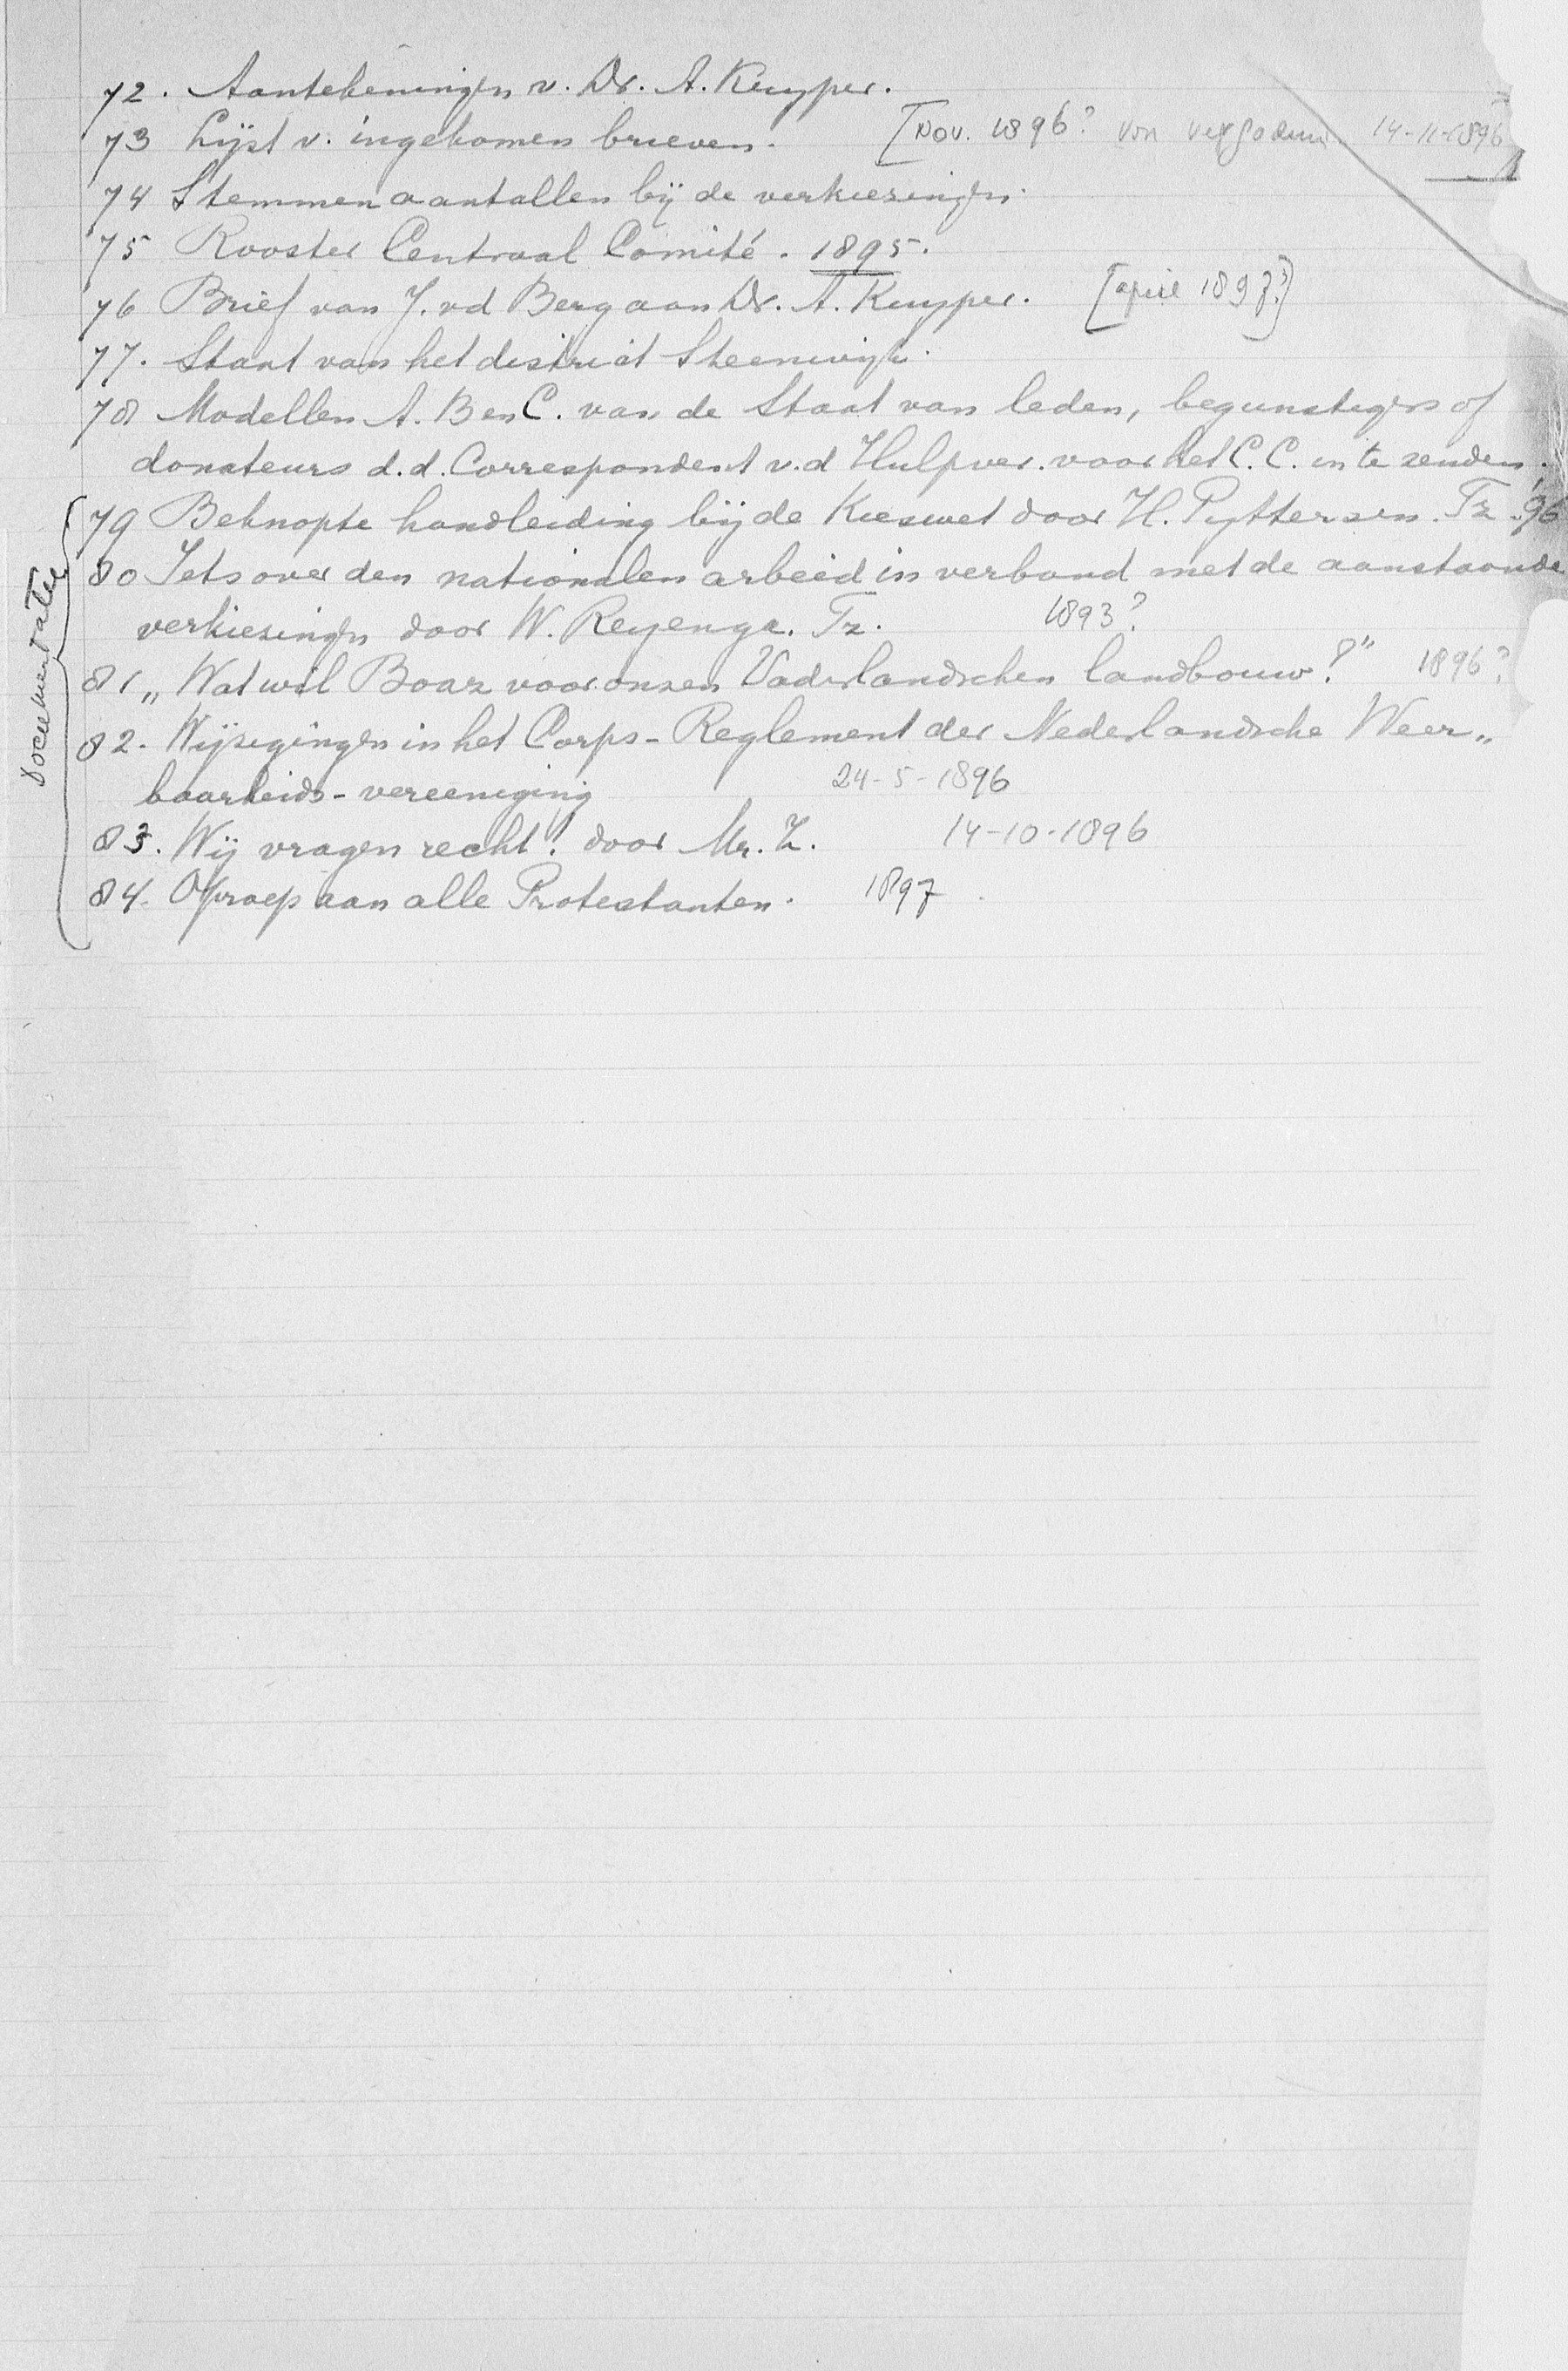 72. Aantekeningen v. Dr. A. Kuyper.
73 Lijst v. ingekomen brieven. [Nov. 1896? von 14-11-1896
74 Stemmenaantallen bij de verkiezingen.
75 Rooster Centraal Comité. 1895.
76 Brief van J. vd Berg aan Dr. A. Kuyper. [april 1897?]
77. Staat van het district Steenwijk.
78 Modellen A. B en C. van de Staat van leden, begunstigers of
donateurs d.d. Correspondent v.d Hulpver. voor het C. C. in te zenden.
Documentatie
79 Beknopte handleiding bij de Kieswet door H. Pyttersen. Tz. '96
80 Iets over den nationalen arbeid in verband met de aanstaande
verkiezingen door W. Reyenga. Tz. 1893?
81 „Wat wil Boaz voor onzen Vaderlandschen landbouw?" 1896?
82. Wijzigingen in het Corps-Reglement der Nederlandsche Weer„
baarheids-vereeniging 24-5-1896
83. Wij vragen recht! door Mr. Z. 14-10-1896
84. Oproep aan alle Protestanten. 1897